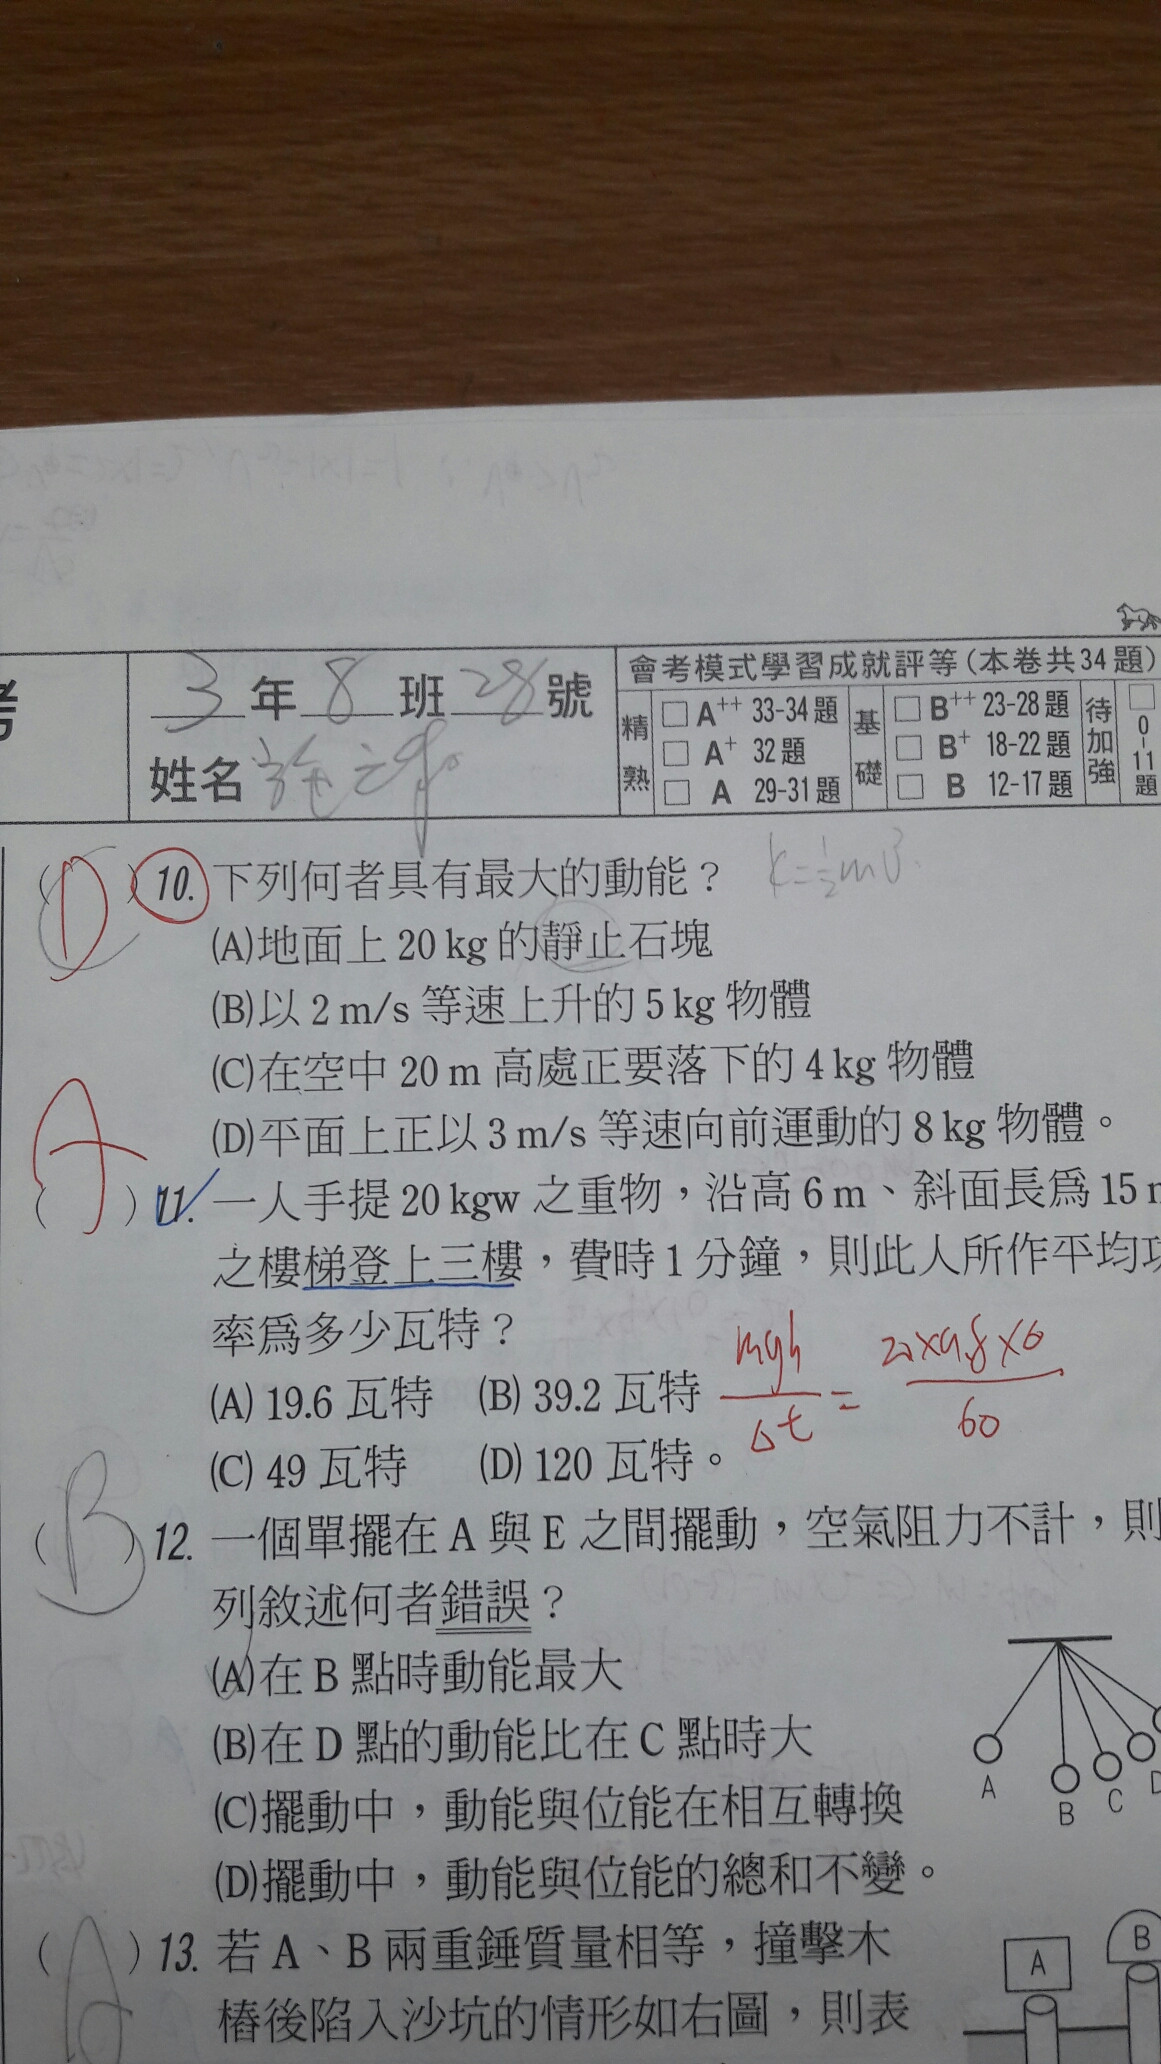 考
3年8班28號
姓名
會考模式學習成就評等(本卷共34題)
精熟
□ A++ 33-34題
□ A+ 32題
□ A 29-31題
基礎
□ B++ 23-28題
□ B+ 18-22題
□ B 12-17題
待加強
□ 0-11題
(D)10. 下列何者具有最大的動能?
(A)地面上 20 kg 的靜止石塊
(B)以 2 m/s 等速上升的 5 kg 物體
(C)在空中 20 m 高處正要落下的 4 kg 物體
(D)平面上正以 3 m/s 等速向前運動的 8 kg 物體。
(A)11. 一人手提 20 kgw 之重物,沿高 6 m、斜面長爲 15
之樓梯登上三樓,費時 1 分鐘,則此人所作平均功
率爲多少瓦特?
mgh/Δt = 20×9.8×6/60
(A) 19.6 瓦特 (B) 39.2 瓦特
(C) 49 瓦特 (D) 120 瓦特。
(B)12. 一個單擺在 A 與 E 之間擺動,空氣阻力不計,則
列敘述何者錯誤?
(A)在 B 點時動能最大
(B)在 D 點的動能比在 C 點時大
(C)擺動中,動能與位能在相互轉換
(D)擺動中,動能與位能的總和不變。
A
B
C
D
(A)13. 若 A、B 兩重錘質量相等,撞擊木
樁後陷入沙坑的情形如右圖,則表
A
B